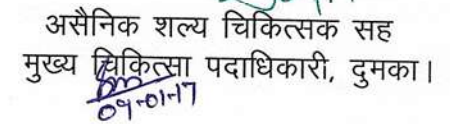 असैनिक शल्य चिकित्सक सह
मुख्य चिकित्सा पदाधिकारी, दुमका।
09-01-17